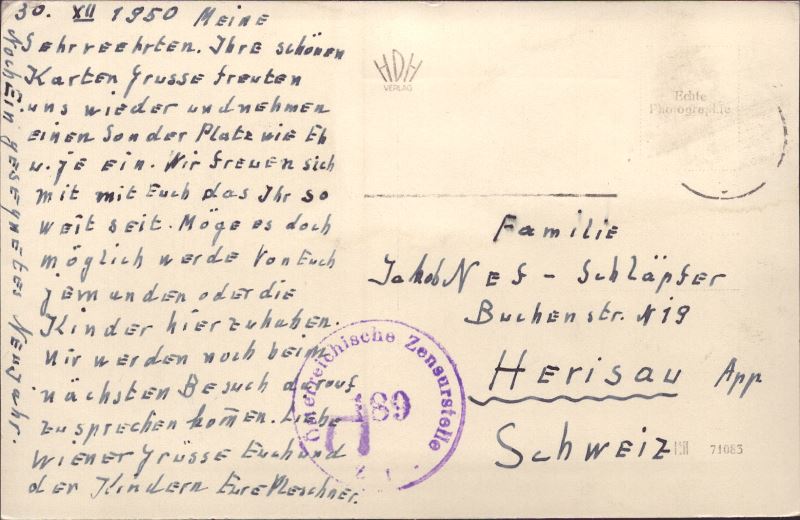 30. XII 1950 Meine
Sehrveehrten. Ihre schönen
Karten Grüsse freuten
uns wieder und nehmen
einen Sonder Platz wie Eh
u. je ein. Wir freuen sich
mit mit Euch das Ihr so
weit seit. Möge es doch
möglich werde Von Euch
jemunden oder die
Kinder hier zuhaben.
Wir werden noch beim
nächsten Besuch darauf
zusprechen kom̄en. Liebe
Wiener Grüsse Euch und
der Kindern Eure Pleschner.
Noch Ein gesegnetes Neujahr.
HDH
VERLAG
Echte
Photographie
Familie
Jakob Nef - Schläpfer
Buchenstr. N 19
Herisau App
Schweiz
71083
Österreichische Zensurstelle
189